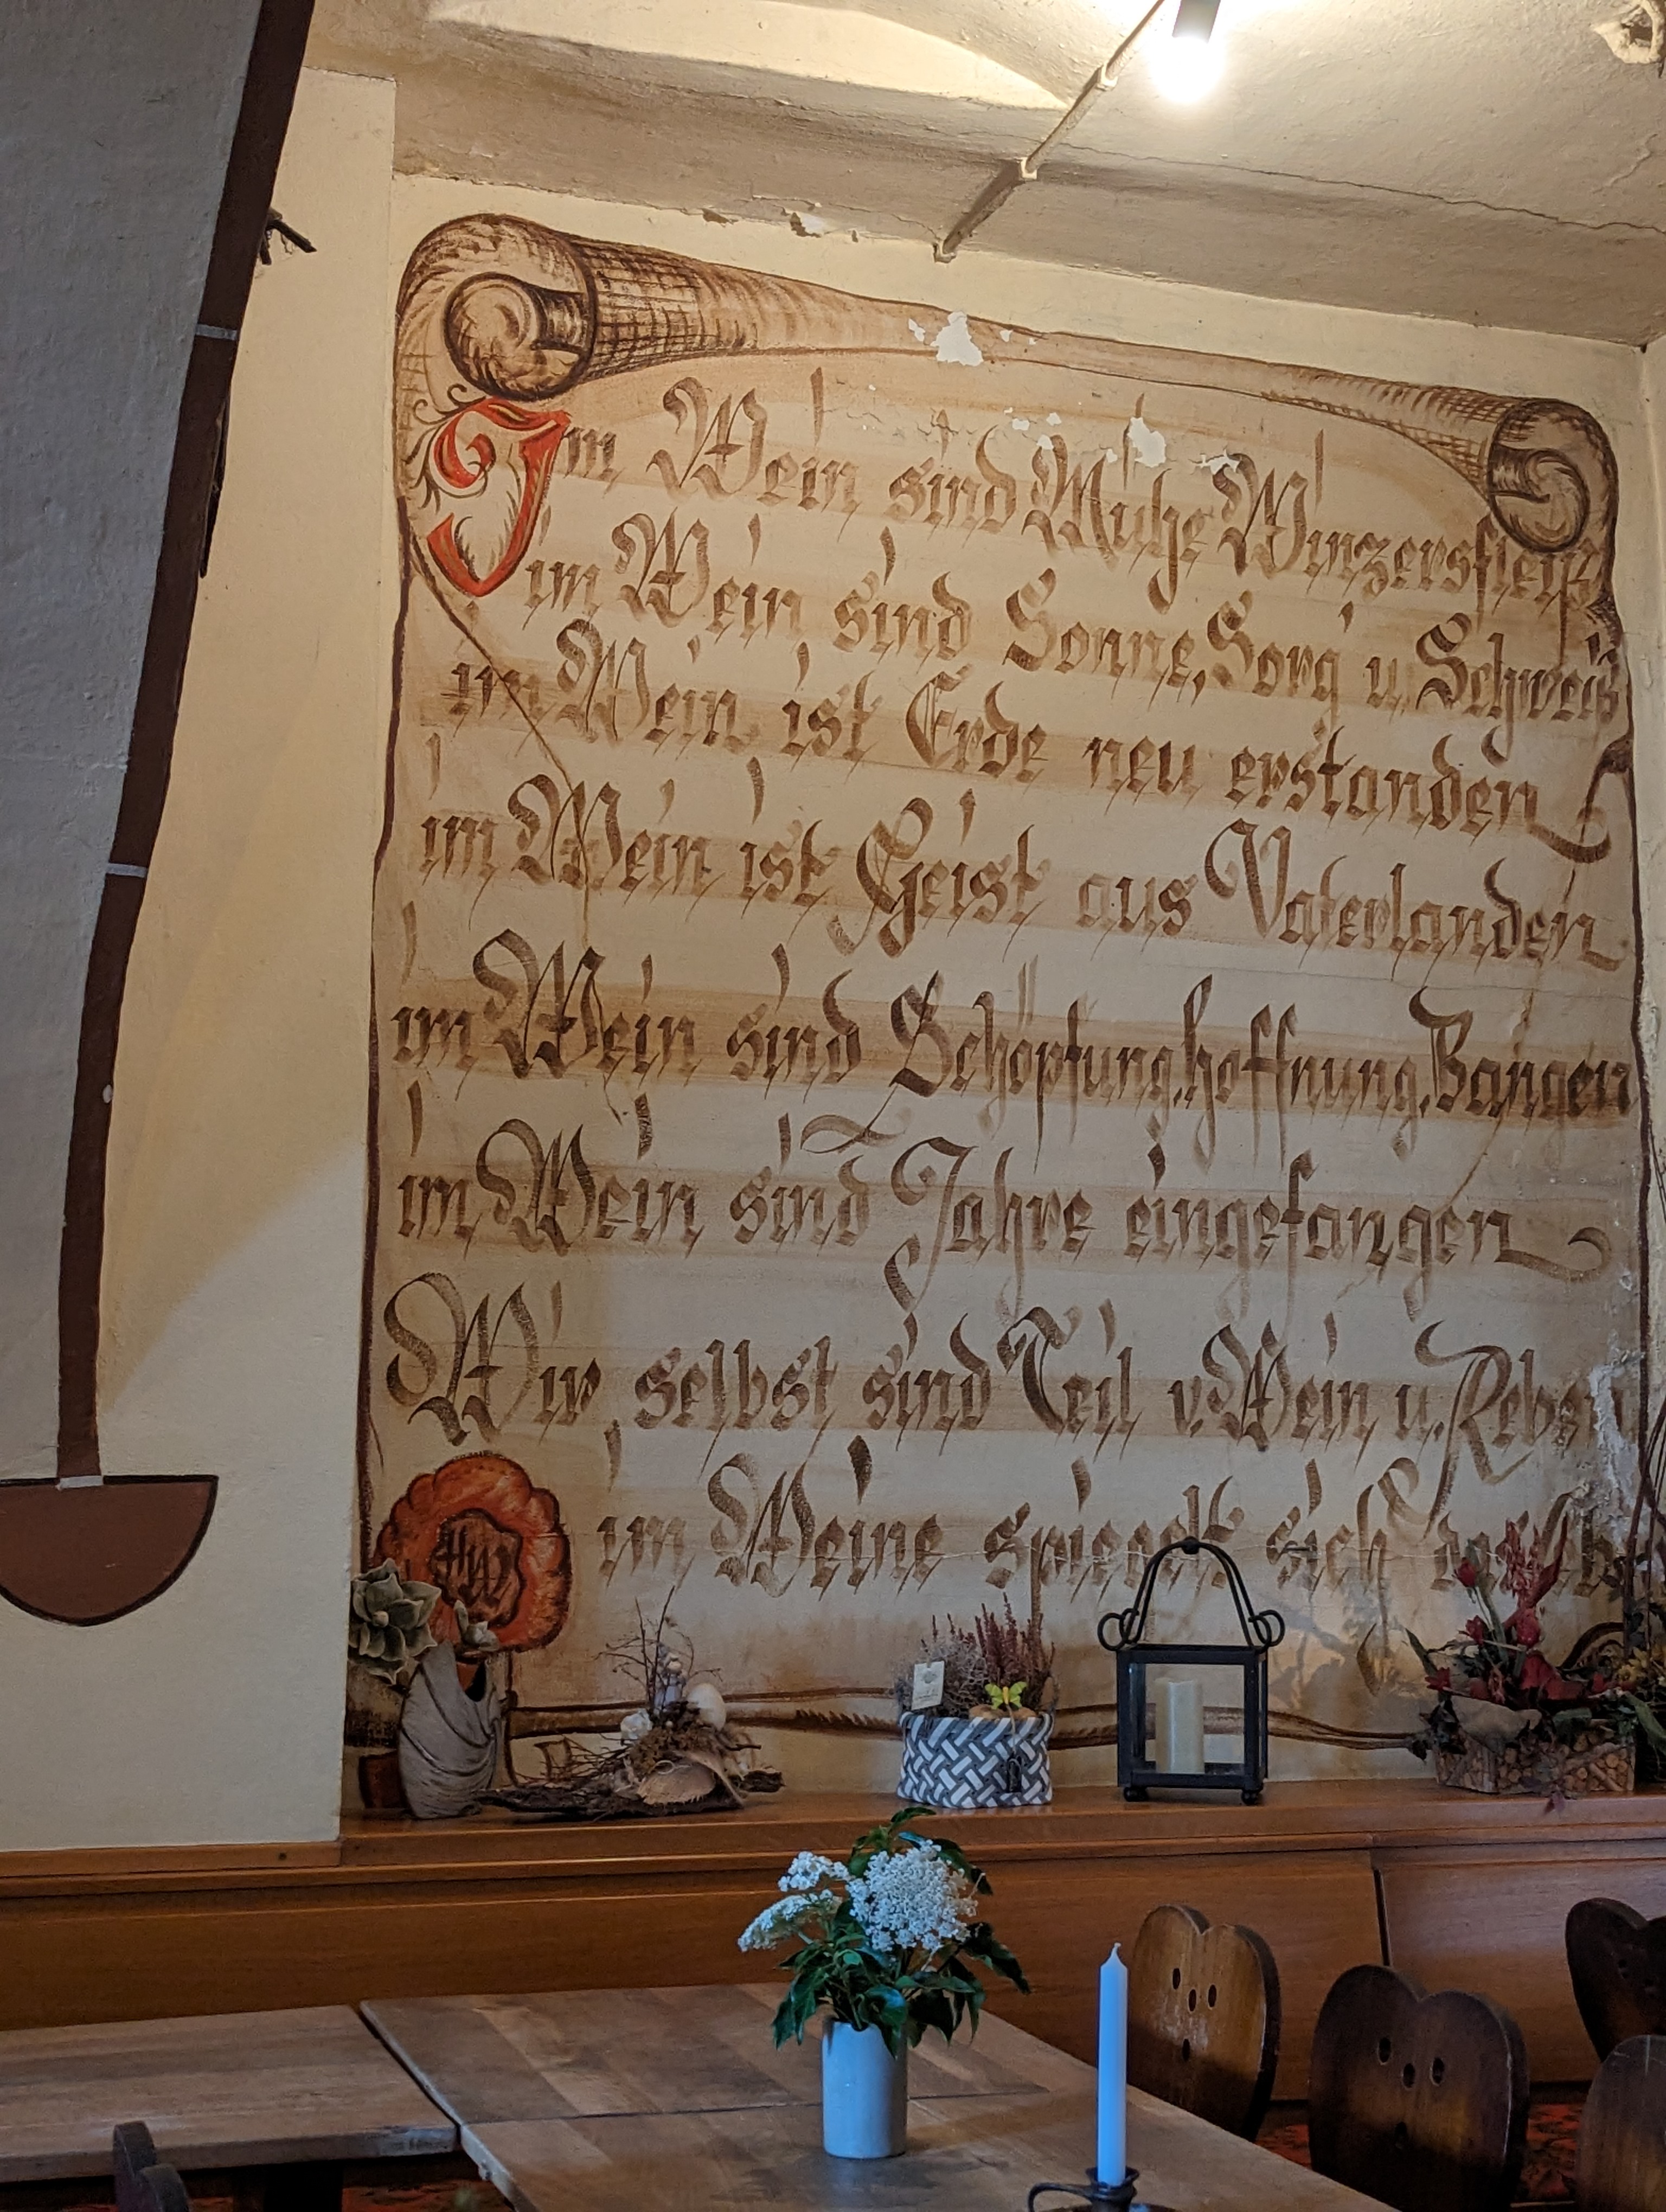 Im Wein sind Mühe Winzersfleiß
im Wein sind Sonne, Sorg u. Schweiß
im Wein ist Erde neu erstanden
im Wein ist Geist aus Vaterlanden
im Wein sind Schöpfung, hoffnung, Bangen
im Wein sind Jahre eingefangen
Wir selbst sind Teil v. Wein u. Reben
im Weine spiegelt sich
HW